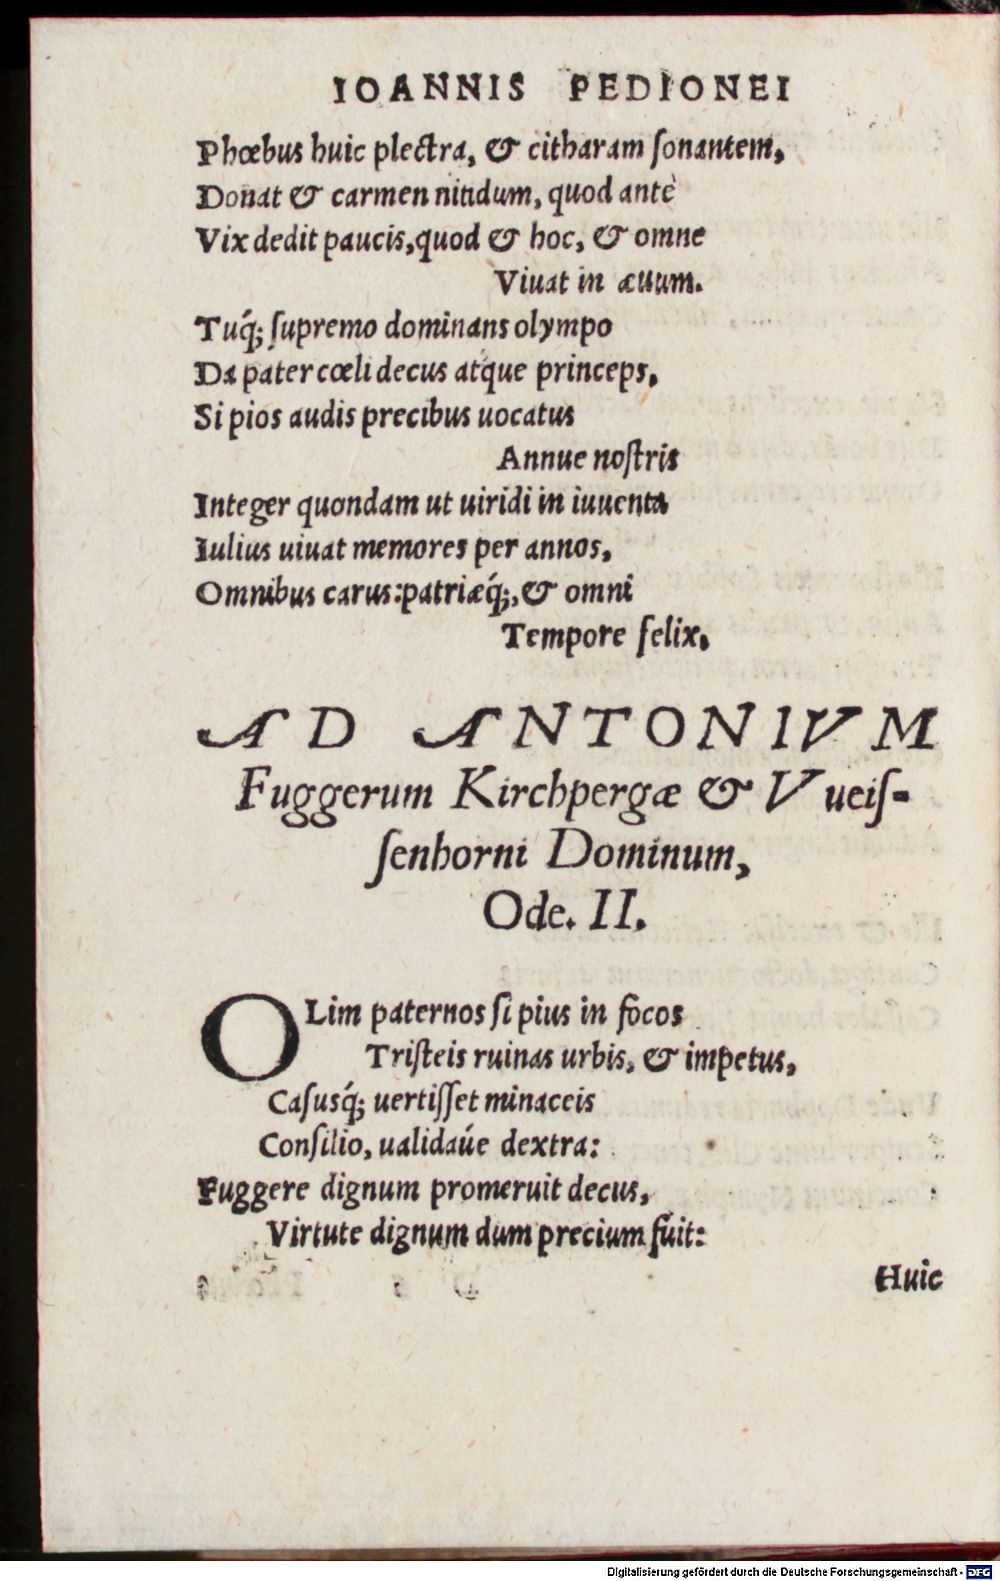 IOANNIS PEDIONEI
Phœbus huic plectra, & citharam ſonantem,
Donat & carmen nitidum, quod antè
Vix dedit paucis, quod & hoc, & omne
Viuat in æuum.
Tuq́; ſupremo dominans olympo
Da pater cœli decus atque princeps,
Si pios audis precibus uocatus
Annue noſtris
Integer quondam ut uiridi in iuuenta
Iulius uiuat memores per annos,
Omnibus carus: patriæq́;, & omni
Tempore felix.
AD ANTONIVM
Fuggerum Kirchpergæ & Vueiſ-
ſenhorni Dominum,
Ode. II.
OLim paternos ſi pius in focos
Triſteis ruinas urbis, & impetus,
Caſusq́; uertiſſet minaceis
Conſilio, ualidaúe dextra:
Fuggere dignum promeruit decus,
Virtute dignum dum precium fuit:
Huic
Digitalisierung gefördert durch die Deutsche Forschungsgemeinschaft - DFG